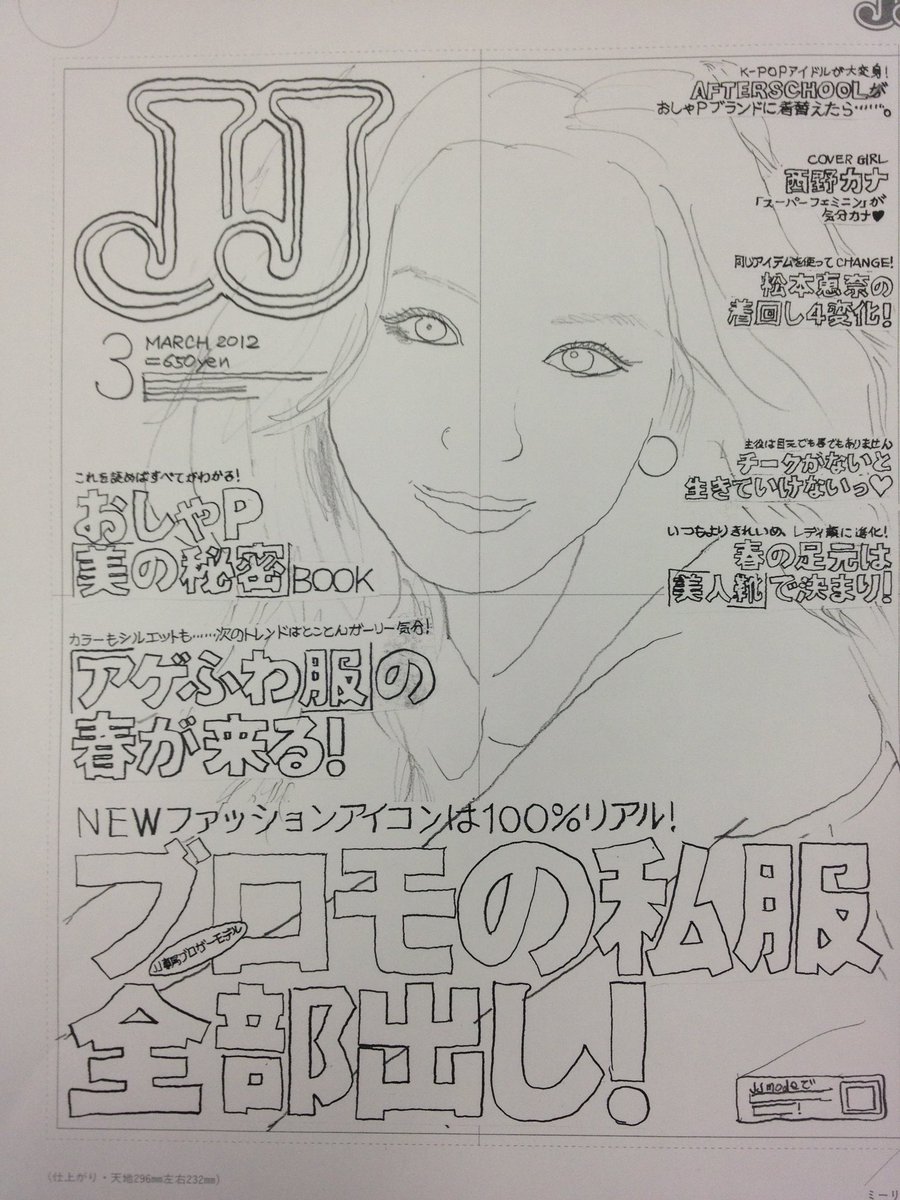 JJ
3
MARCH 2012
=650yen
K-POPアイドルが大変身!
AFTERSCHOOLが
おしゃPブランドに着替えたら……。
COVER GIRL
西野カナ
「スーパーフェミニン」が
気分カナ♥
同じアイテムを使ってCHANGE!
松本恵奈の
着回し4変化!
主役は目元でも唇でもありません
チークがないと
生きていけないっ♡
いつもよりきれいめ、レディ靴に進化!
春の足元は
「美人靴」で決まり!
これを読めばすべてがわかる!
おしゃP
「美の秘密」BOOK
カラーもシルエットも……次のトレンドはとことんガーリー気分!
「アゲふわ服」の
春が来る!
NEWファッションアイコンは100%リアル!
ブロモの私服
JJ専属ブロガーモデル
全部出し!
JJmodeで
(仕上がり・天地296mm左右232mm)
ミーリ